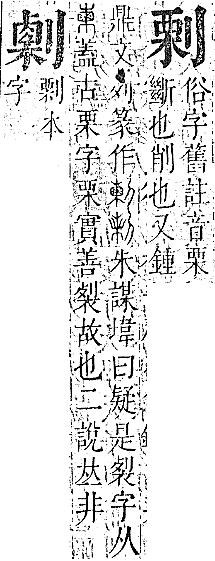 剽
俗字舊註音栗
斷也削也又鍾
鼎文列篆作朱謀㙔曰疑是裂字从
蓋古栗字栗實善裂故也二說𠀤非
剽本
字